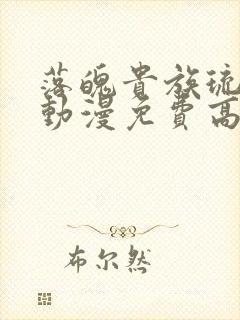 落魄貴族琉
動漫免費高
布尔然